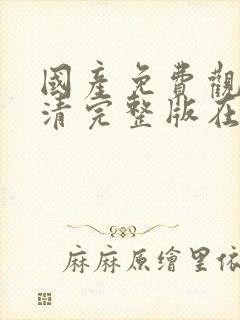 國產免費觀
清完整版在
麻麻原繪里依